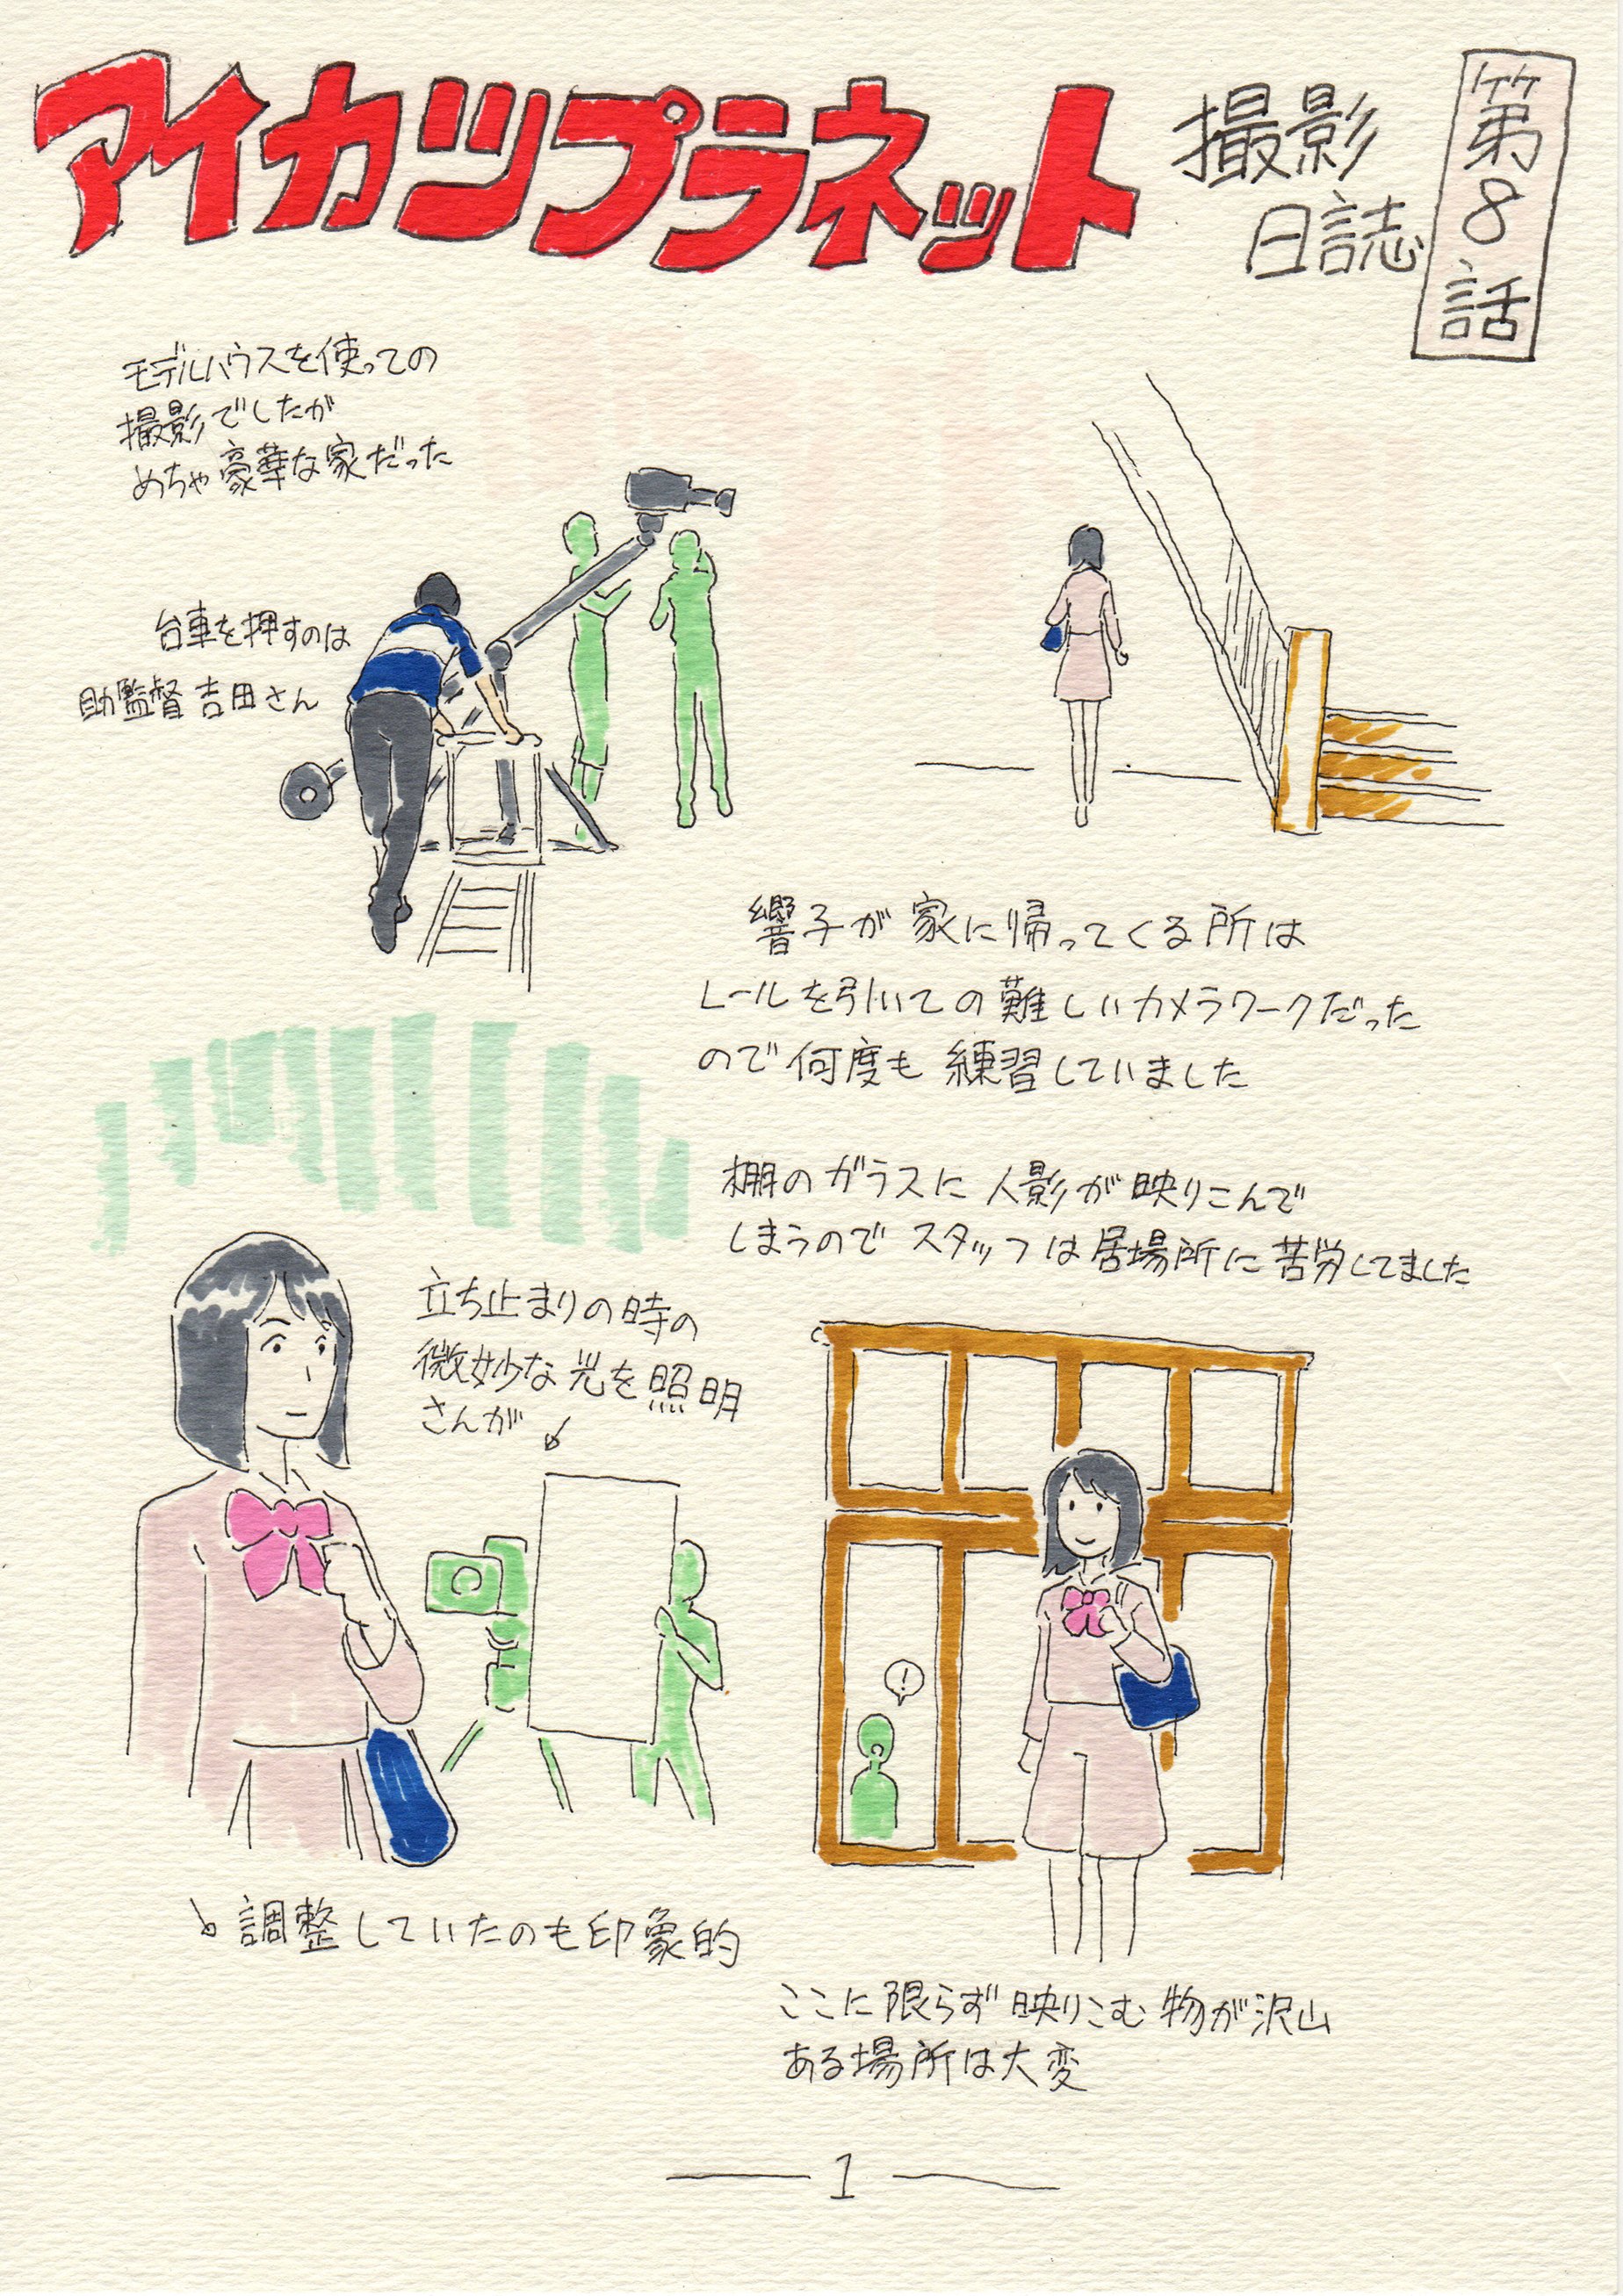 アイカツプラネット
撮影
日誌
第8話
モデルハウスを使っての
撮影でしたが
めちゃ豪華な家だった
台車を押すのは
助監督吉田さん
響子が家に帰ってくる所は
レールを引いての難しいカメラワークだった
ので何度も練習していました
棚のガラスに人影が映りこんで
しまうのでスタッフは居場所に苦労してました
立ち止まりの時の
微妙な光を照明
さんが
!
調整していたのも印象的
ここに限らず映りこむ物が沢山
ある場所は大変
1